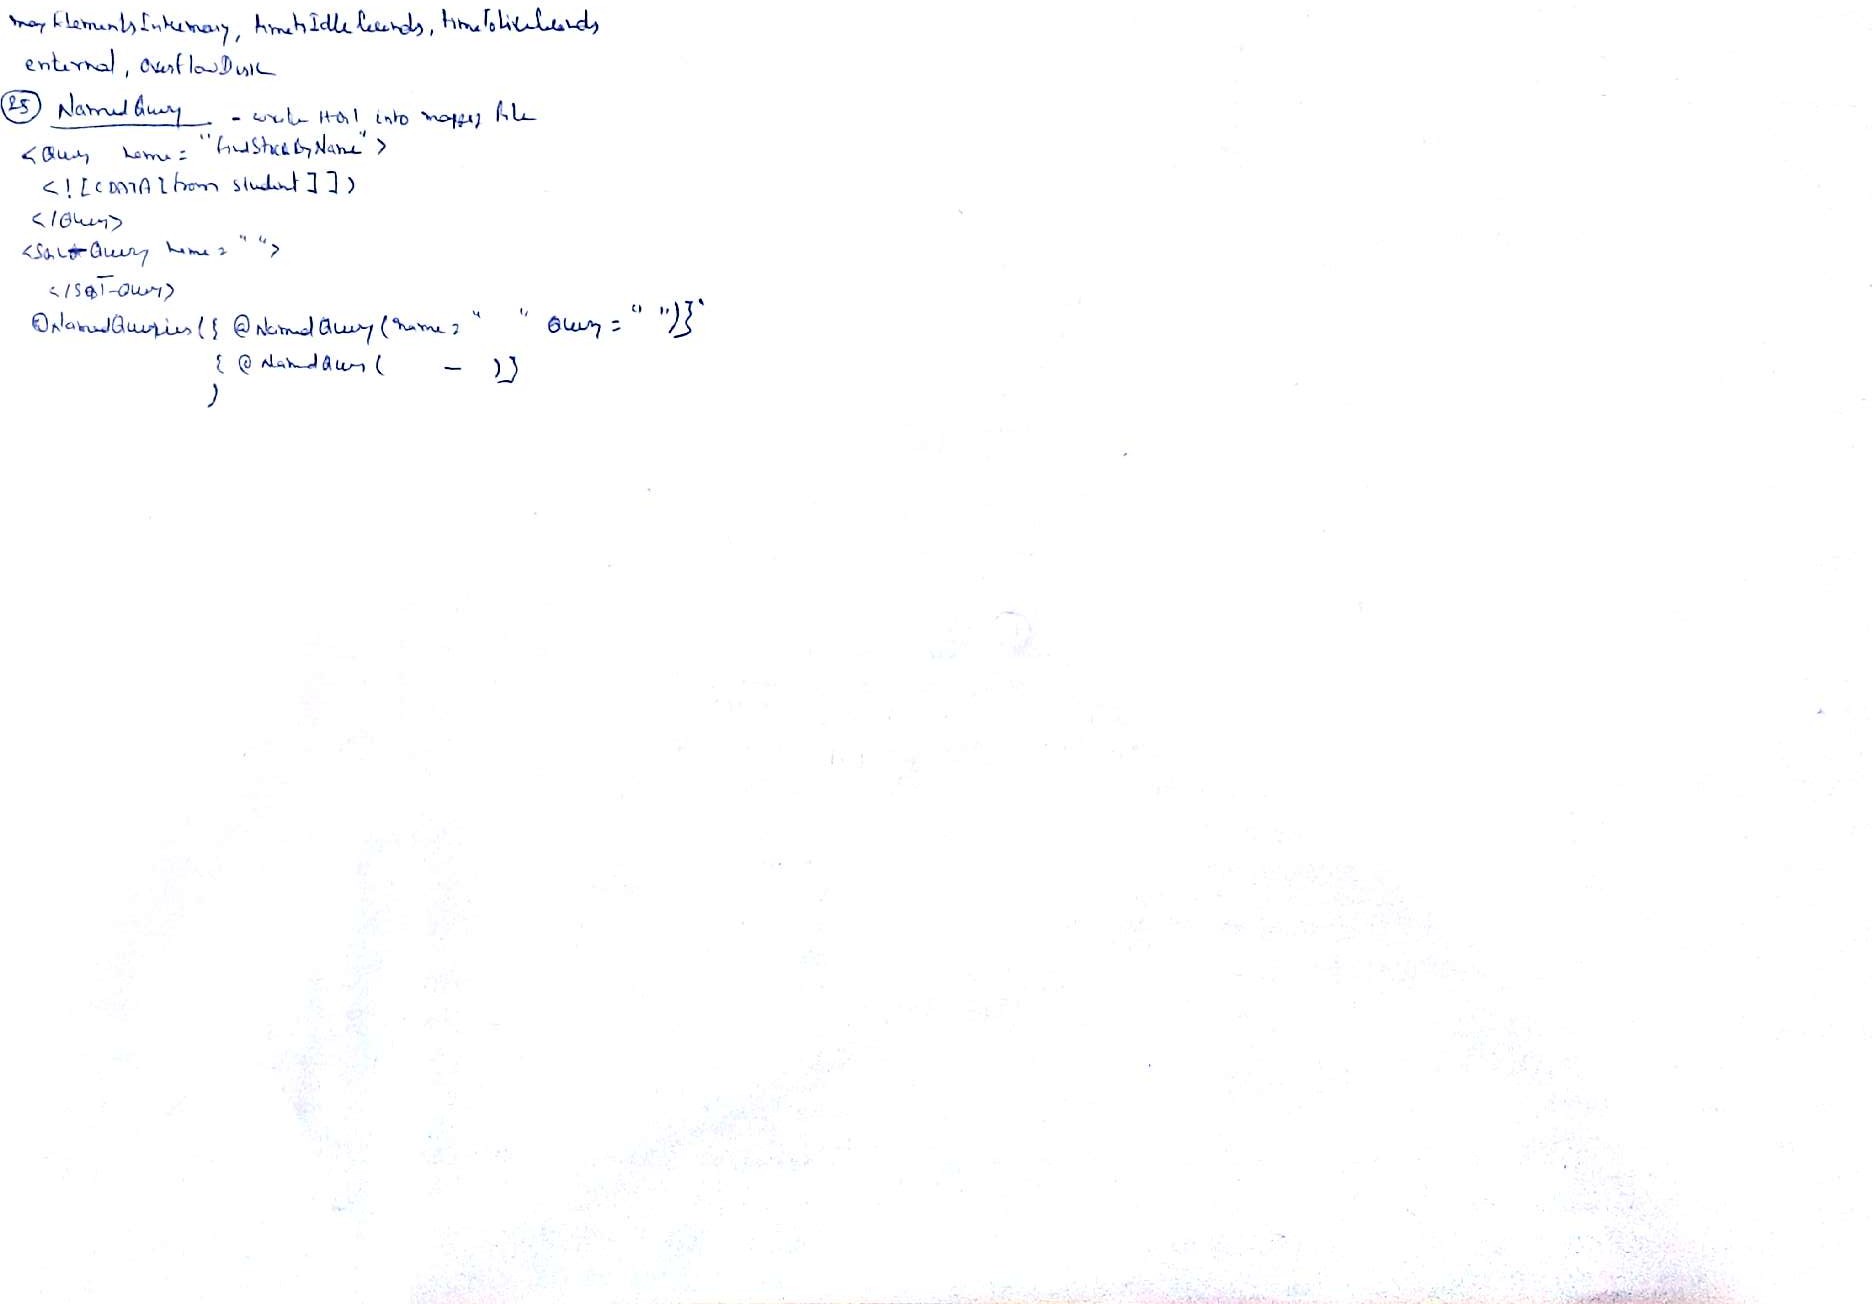 max ElementsInMemory, timetoIdleSeconds, timeToLiveSeconds
enternal, overflowDisk
25 NamedQuery - write HQL into mapping file
<Query name = "findStockByName">
<![CDATA[from student]])
</Query>
<SQL-Query name = " ">
</SQL-Query>
@NamedQueries({ @NamedQuery(name = " " Query = " ")}
{ @NamedQuery( - )}
)